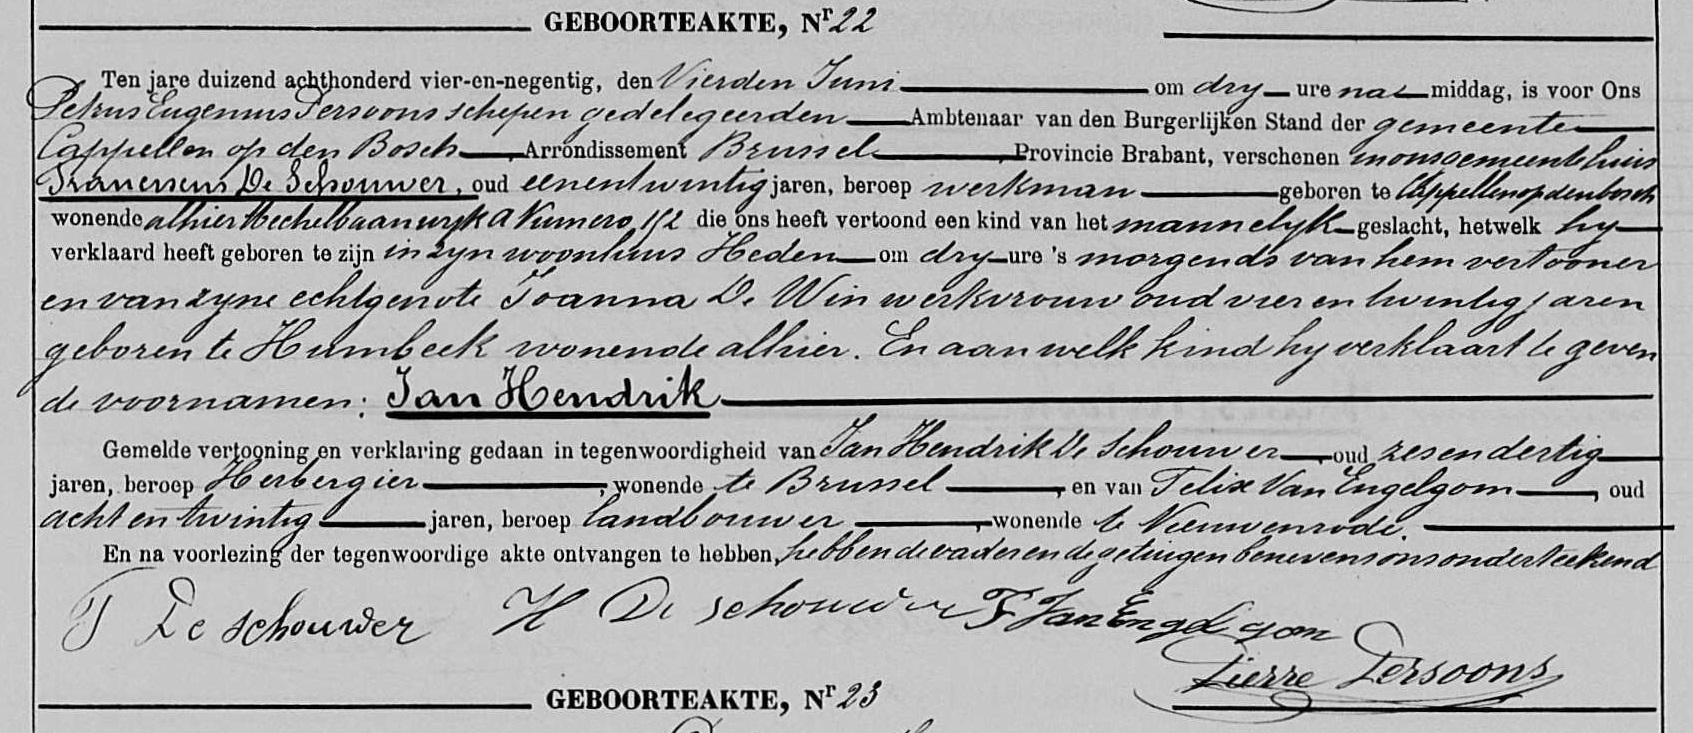 GEBOORTEAKTE, Nr 22
Ten jare duizend achthonderd vier-en-negentig, den Vierden Juni om dry ure na middag, is voor Ons
Petrus Eugenius Persoons schepen gedelegeerden Ambtenaar van den Burgerlijken Stand der gemeente
Cappellen op den Bosch, Arrondissement Brussel, Provincie Brabant, verschenen in ons gemeentehuis
Franciscus De Schouwer, oud eenentwintig jaren, beroep werkman geboren te Cappellen op den bosch
wonende alhier Mechelbaan wyk A Numero 152 die ons heeft vertoond een kind van het mannelyk geslacht, hetwelk hy
verklaard heeft geboren te zijn in zyn woonhuis Heden om dry ure 's morgends van hem vertooner
en van zyne echtgenote Joanna De Win werkvrouw oud vier en twintig jaren
geboren te Humbeek wonende alhier. En aan welk kind hy verklaart te geven
de voornamen: Jan Hendrik
Gemelde vertooning en verklaring gedaan in tegenwoordigheid van Jan Hendrik De Schouwer, oud zesendertig
jaren, beroep Herbergier, wonende te Brussel, en van Felix Van Engelgom, oud
acht en twintig jaren, beroep landbouwer, wonende te Nieuwenrode.
En na voorlezing der tegenwoordige akte ontvangen te hebben, hebben de vader en de getuigen benevens ons onderteekend
F De schouwer H De schouwer F Van Engelgom
Pierre Persoons
GEBOORTEAKTE, Nr 23